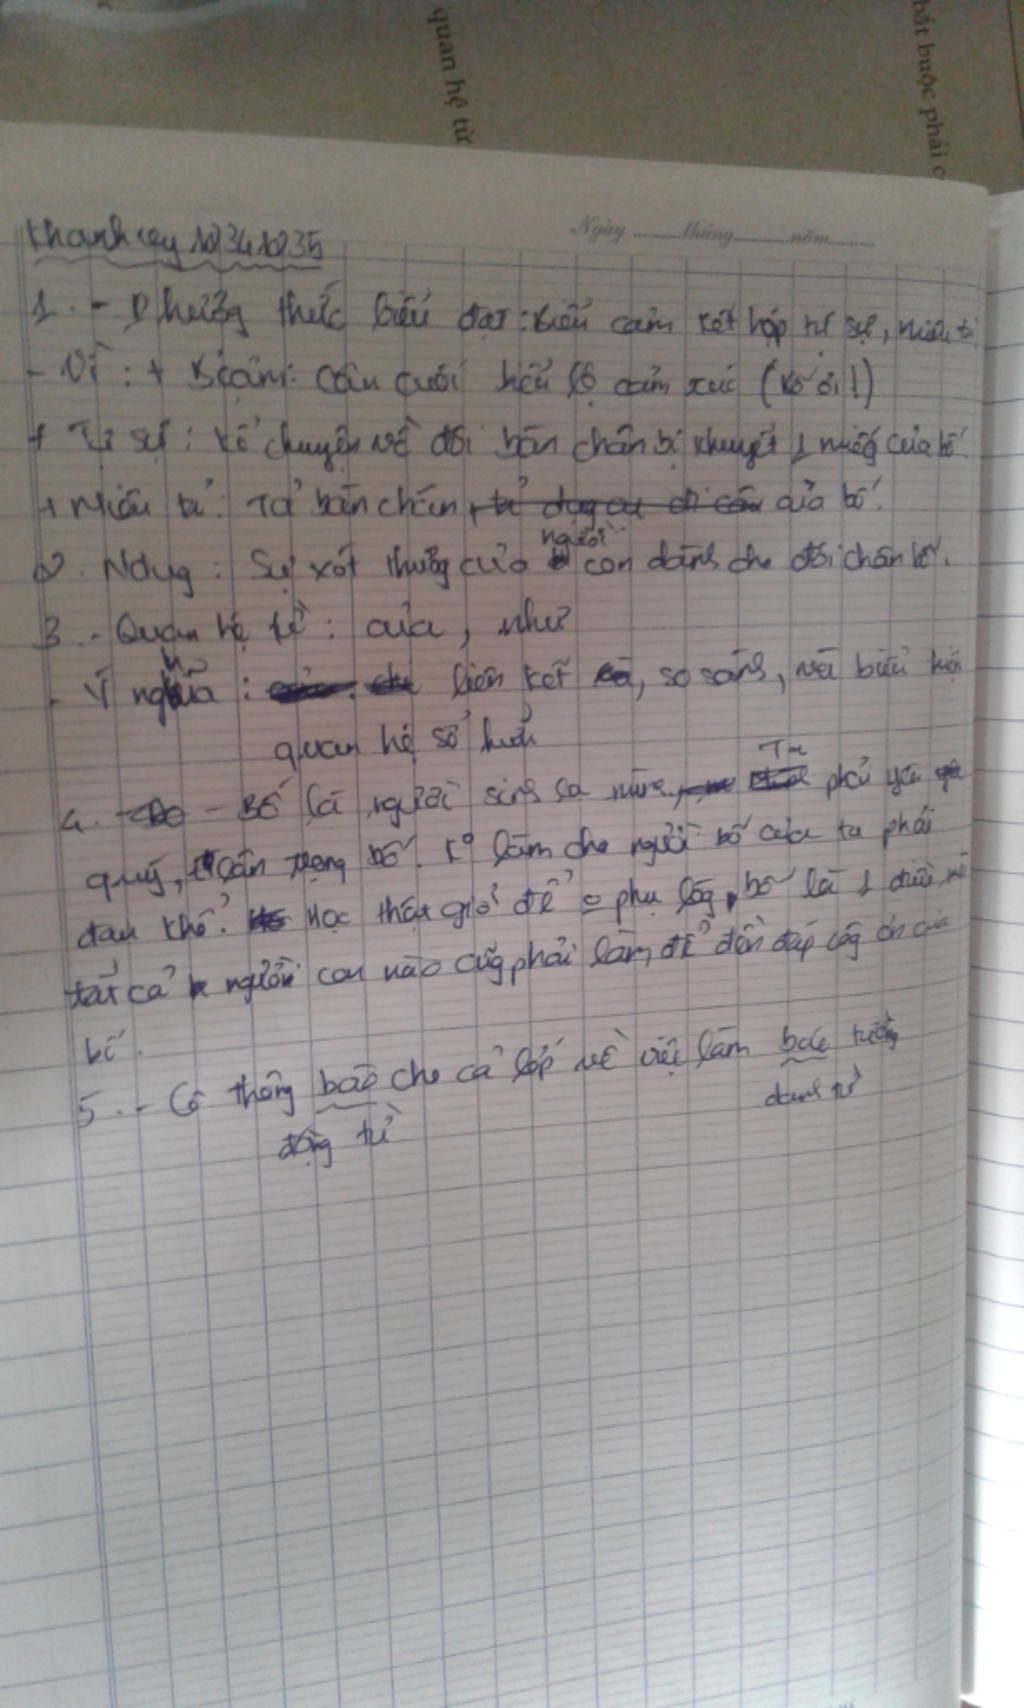 quan hệ từ
bắt buộc phải c
Ngày tháng năm
Khanhvy
1. - Phương thức biểu đạt: biểu cảm kết hợp tự sự, miêu tả
- Vì: + B.cảm: câu cuối biểu lộ cảm xúc (bố ơi!)
+ Tự sự: kể chuyện về đôi bàn chân bị khuyết 1 miếng của bố.
+ Miêu tả: Tả bàn chân của bố.
2. Ndug: Sự xót thương của người con dành cho đôi chân bố.
3. - Quan hệ từ: của, như
- Ý nghĩa: liên kết, so sánh, và biểu hiện
quan hệ sở hữu
4. - Bố là người sinh ra mình. Ta phải yêu
quý, trân trọng bố. Ko làm cho người bố của ta phải
đau khổ. Học thật giỏi để o phụ lòg bố là 1 điều mà
tất cả người con nào cũg phải làm để đền đáp côg ơn của
bố.
5. - Cô thông báo cho cả lớp về việc làm báo tường
động từ danh từ